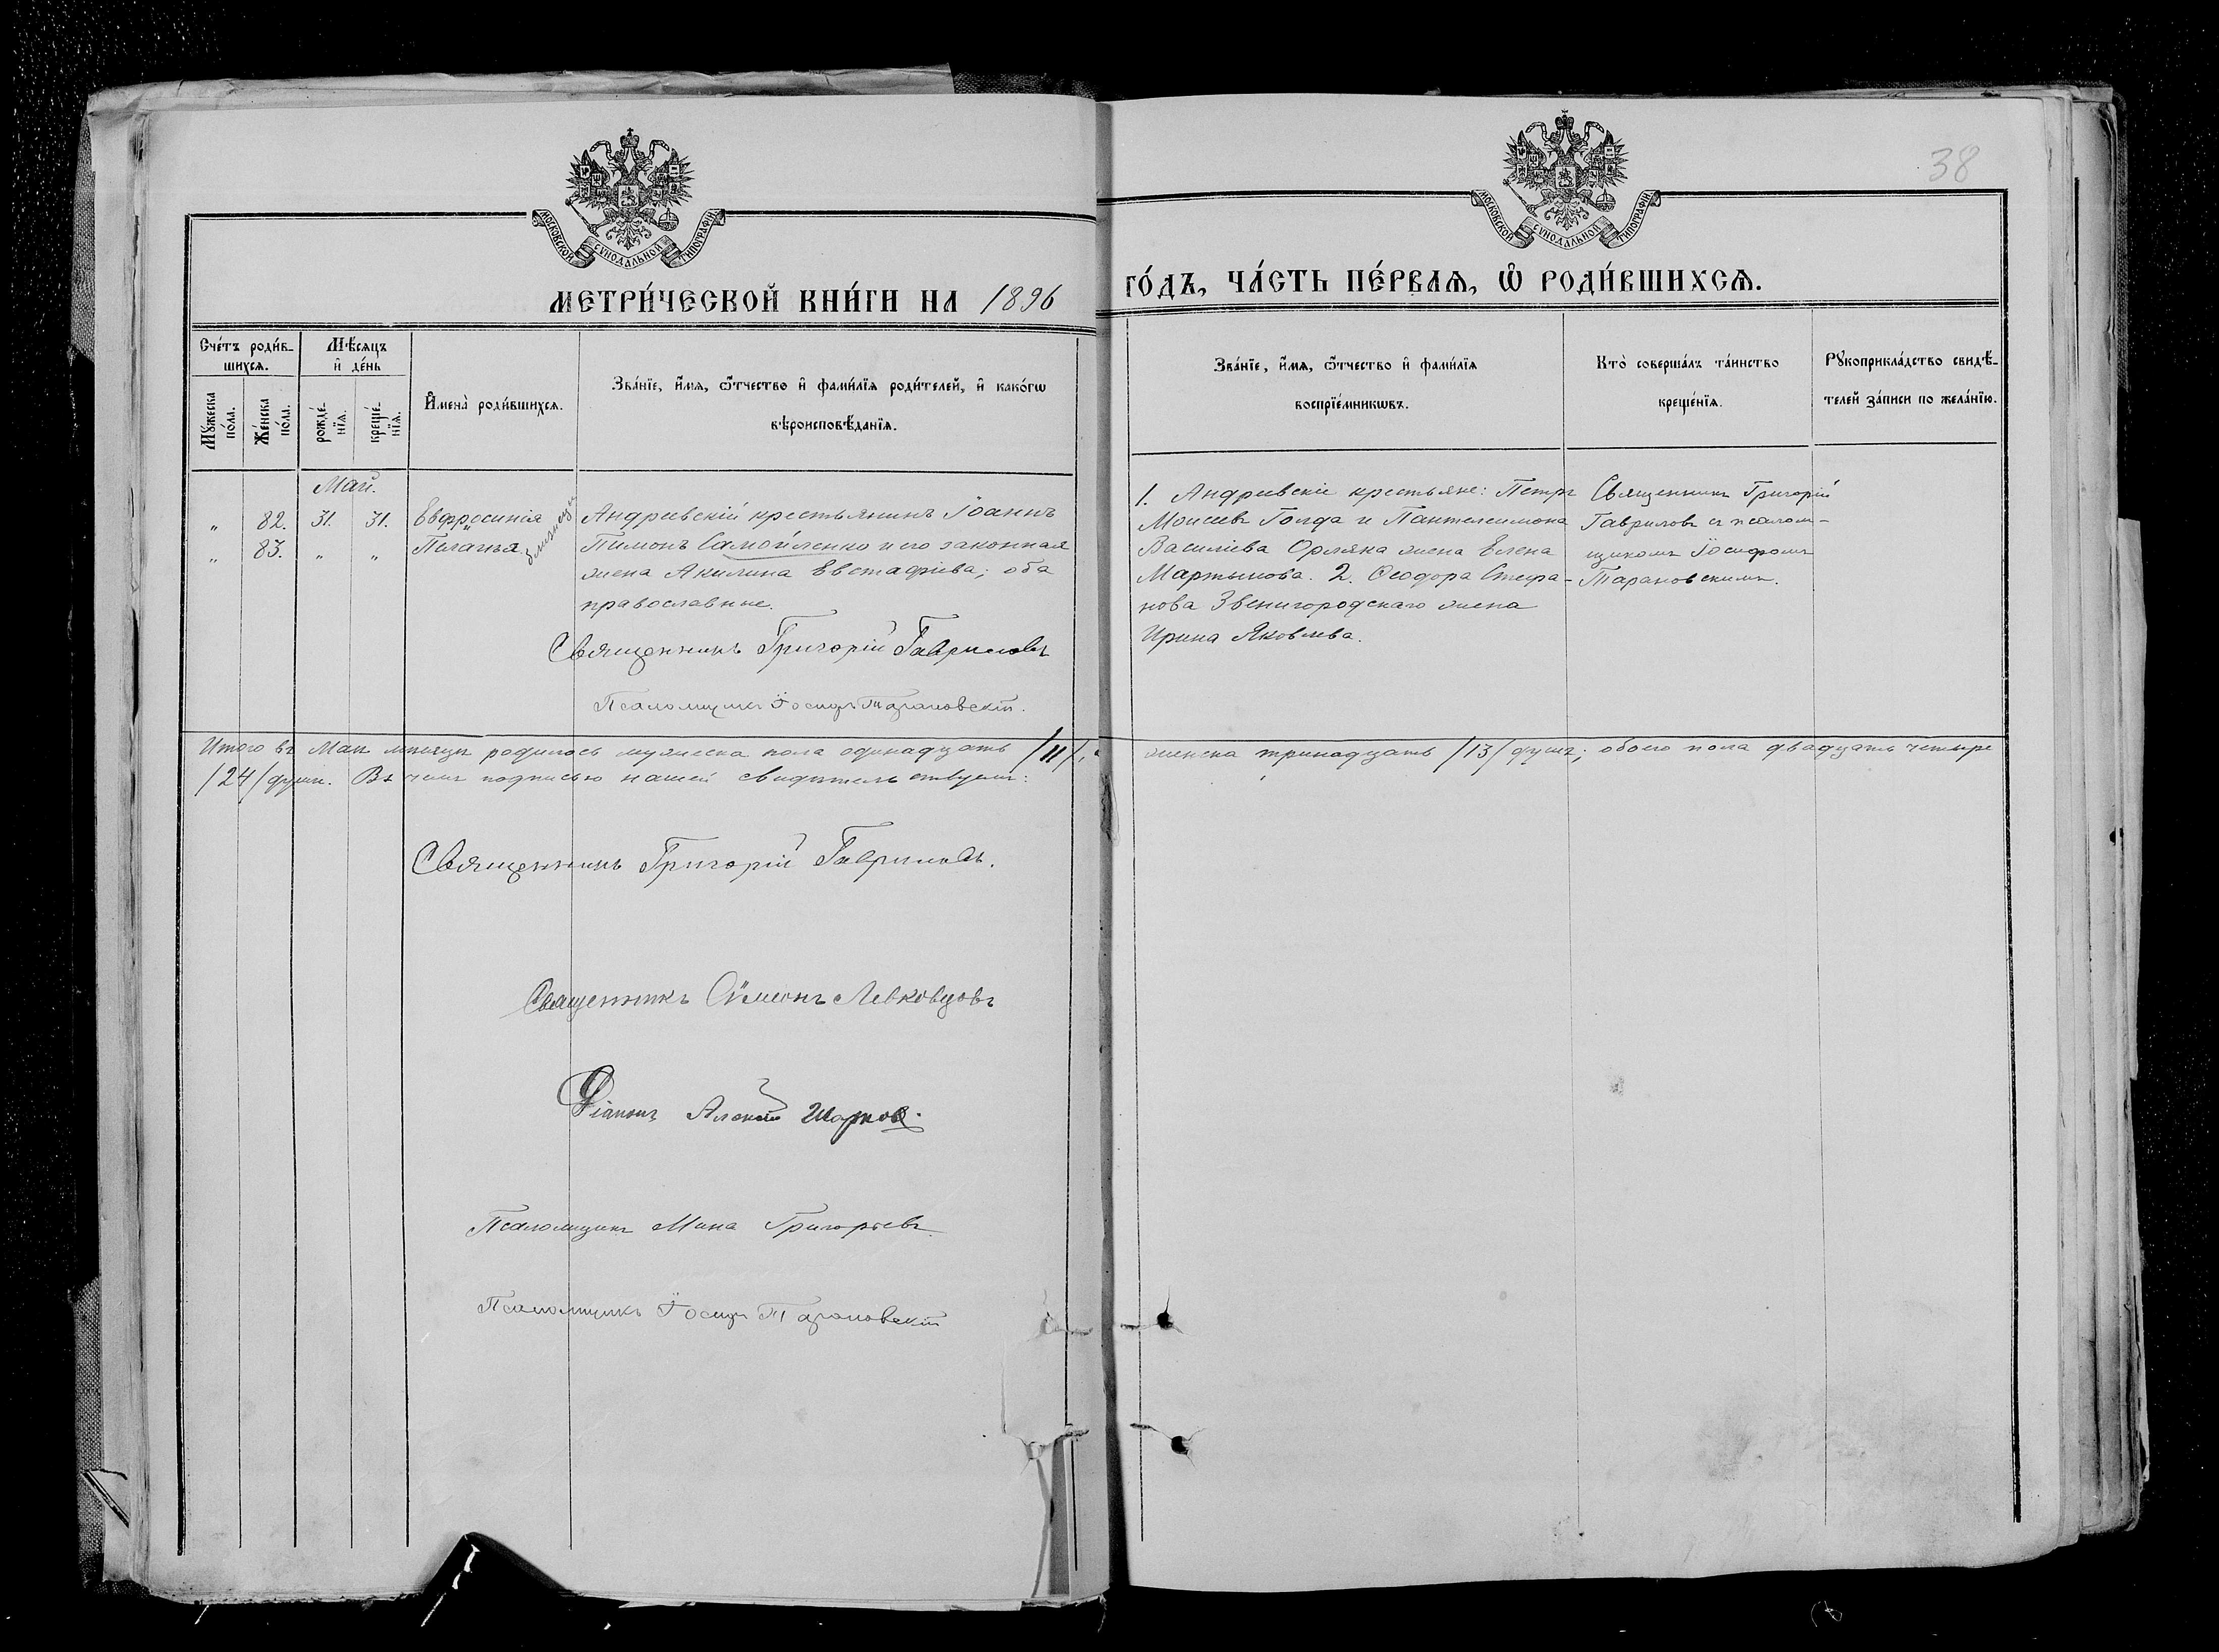 38
МОСКОВСКОЙ СУНОДАЛЬНОЙ ТИПОГРАФІИ
МОСКОВСКОЙ СУНОДАЛЬНОЙ ТИПОГРАФІИ
МЕТРИ́ЧЕСКОЙ КНИ́ГИ НА 1896
ГО́ДЪ, ЧА́СТЬ ПЕ́РВАѦ, Ѡ РОДИ́ВШИХСѦ.
Сче́тъ роди́в-
шихсѧ.
Мꙋжеска
по́ла.
Же́нска
по́ла.
Мѣ́сѧцъ
и҆ де́нь
рожде́-
нїѧ.
креще́-
нїѧ.
И҆мена̀ роди́вшихсѧ.
Зва́нїе, и҆́мѧ, ѻ҆́тчество и҆ фами́лїѧ роди́телей, и҆ како́гѡ
вѣроисповѣ́данїѧ.
Зва́нїе, и҆́мѧ, ѻ҆́тчество и҆ фами́лїѧ
воспрїе́мникѡвъ.
Кто̀ соверша́лъ та́инство
креще́нїѧ.
Рꙋкоприкла́дство свидѣ́-
телей за́писи по жела́нїю.
Май.
" 82. 31. 31. Евфросинія
" 83. " " Пелагья
близнецы
Андреевскій крестьянинъ Іоаннъ
Пимонъ Самойленко и его законная
жена Акилина Евстафіева; оба
православные.
Священникъ Григорій Гавриловъ
Псаломщикъ Іосифъ Тарановскій.
1. Андреевскіе крестьяне: Петръ
Моисеевъ Голда и Пантелеимона
Василіева Орляка жена Елена
Мартынова. 2. Ѳеодора Стефа-
нова Звенигородскаго жена
Ирина Яковлева.
Священникъ Григорій
Гавриловъ съ псалом-
щикомъ Іосифомъ
Тарановскимъ.
Итого въ Маѣ мѣсяцѣ родилось мужеска пола одинадцать /11/, а женска тринадцать /13/ душъ; обоего пола двадцать четыре
/24/ души. Въ чемъ подписью нашей свидѣтельствуемъ:
Священникъ Григорій Гавриловъ.
Священникъ Сѵмеонъ Левковцовъ
Діаконъ Алексій Шарков.
Псаломщикъ Мина Григорьевъ.
Псаломщикъ Іосифъ Тарановскій